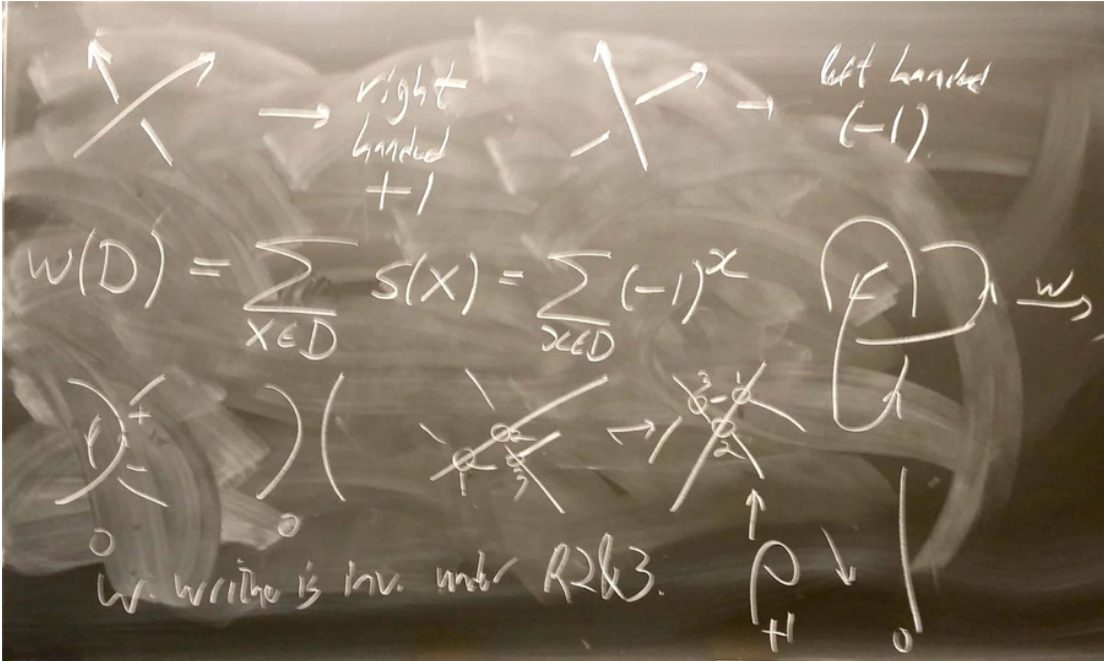 right
handed
+1
left handed
(-1)
w(D) = ∑ S(X) = ∑ (-1)^x
X∈D x∈D
w
+
-
0
0
1
2
3
3 - 1
2
w. writhe is inv. under R2&3.
+1
0